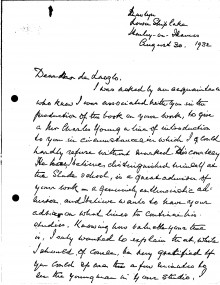 Hamlyn
Lower Shiplake
Henley-on-Thames
August 30. 1932
Dear Mr de Laszlo.
I was asked by an acquaintance
who knew I was associated with you in the
production of the book on your work, to give
a Mr Charles Young a line of introduction
to you in circumstances in which I could
hardly refuse without marked discourtesy
He has I believe distinguished himself at
the Slade School, is a great admirer of
your work in a genuinely enthusiastic
and I believe wants to have your
advice on what lines to continue his
studies. Knowing how valuable your time
is, I only wanted to explain that, while
I should of course, be very gratified if
you could spare him a few minutes
the young man in your Studio.